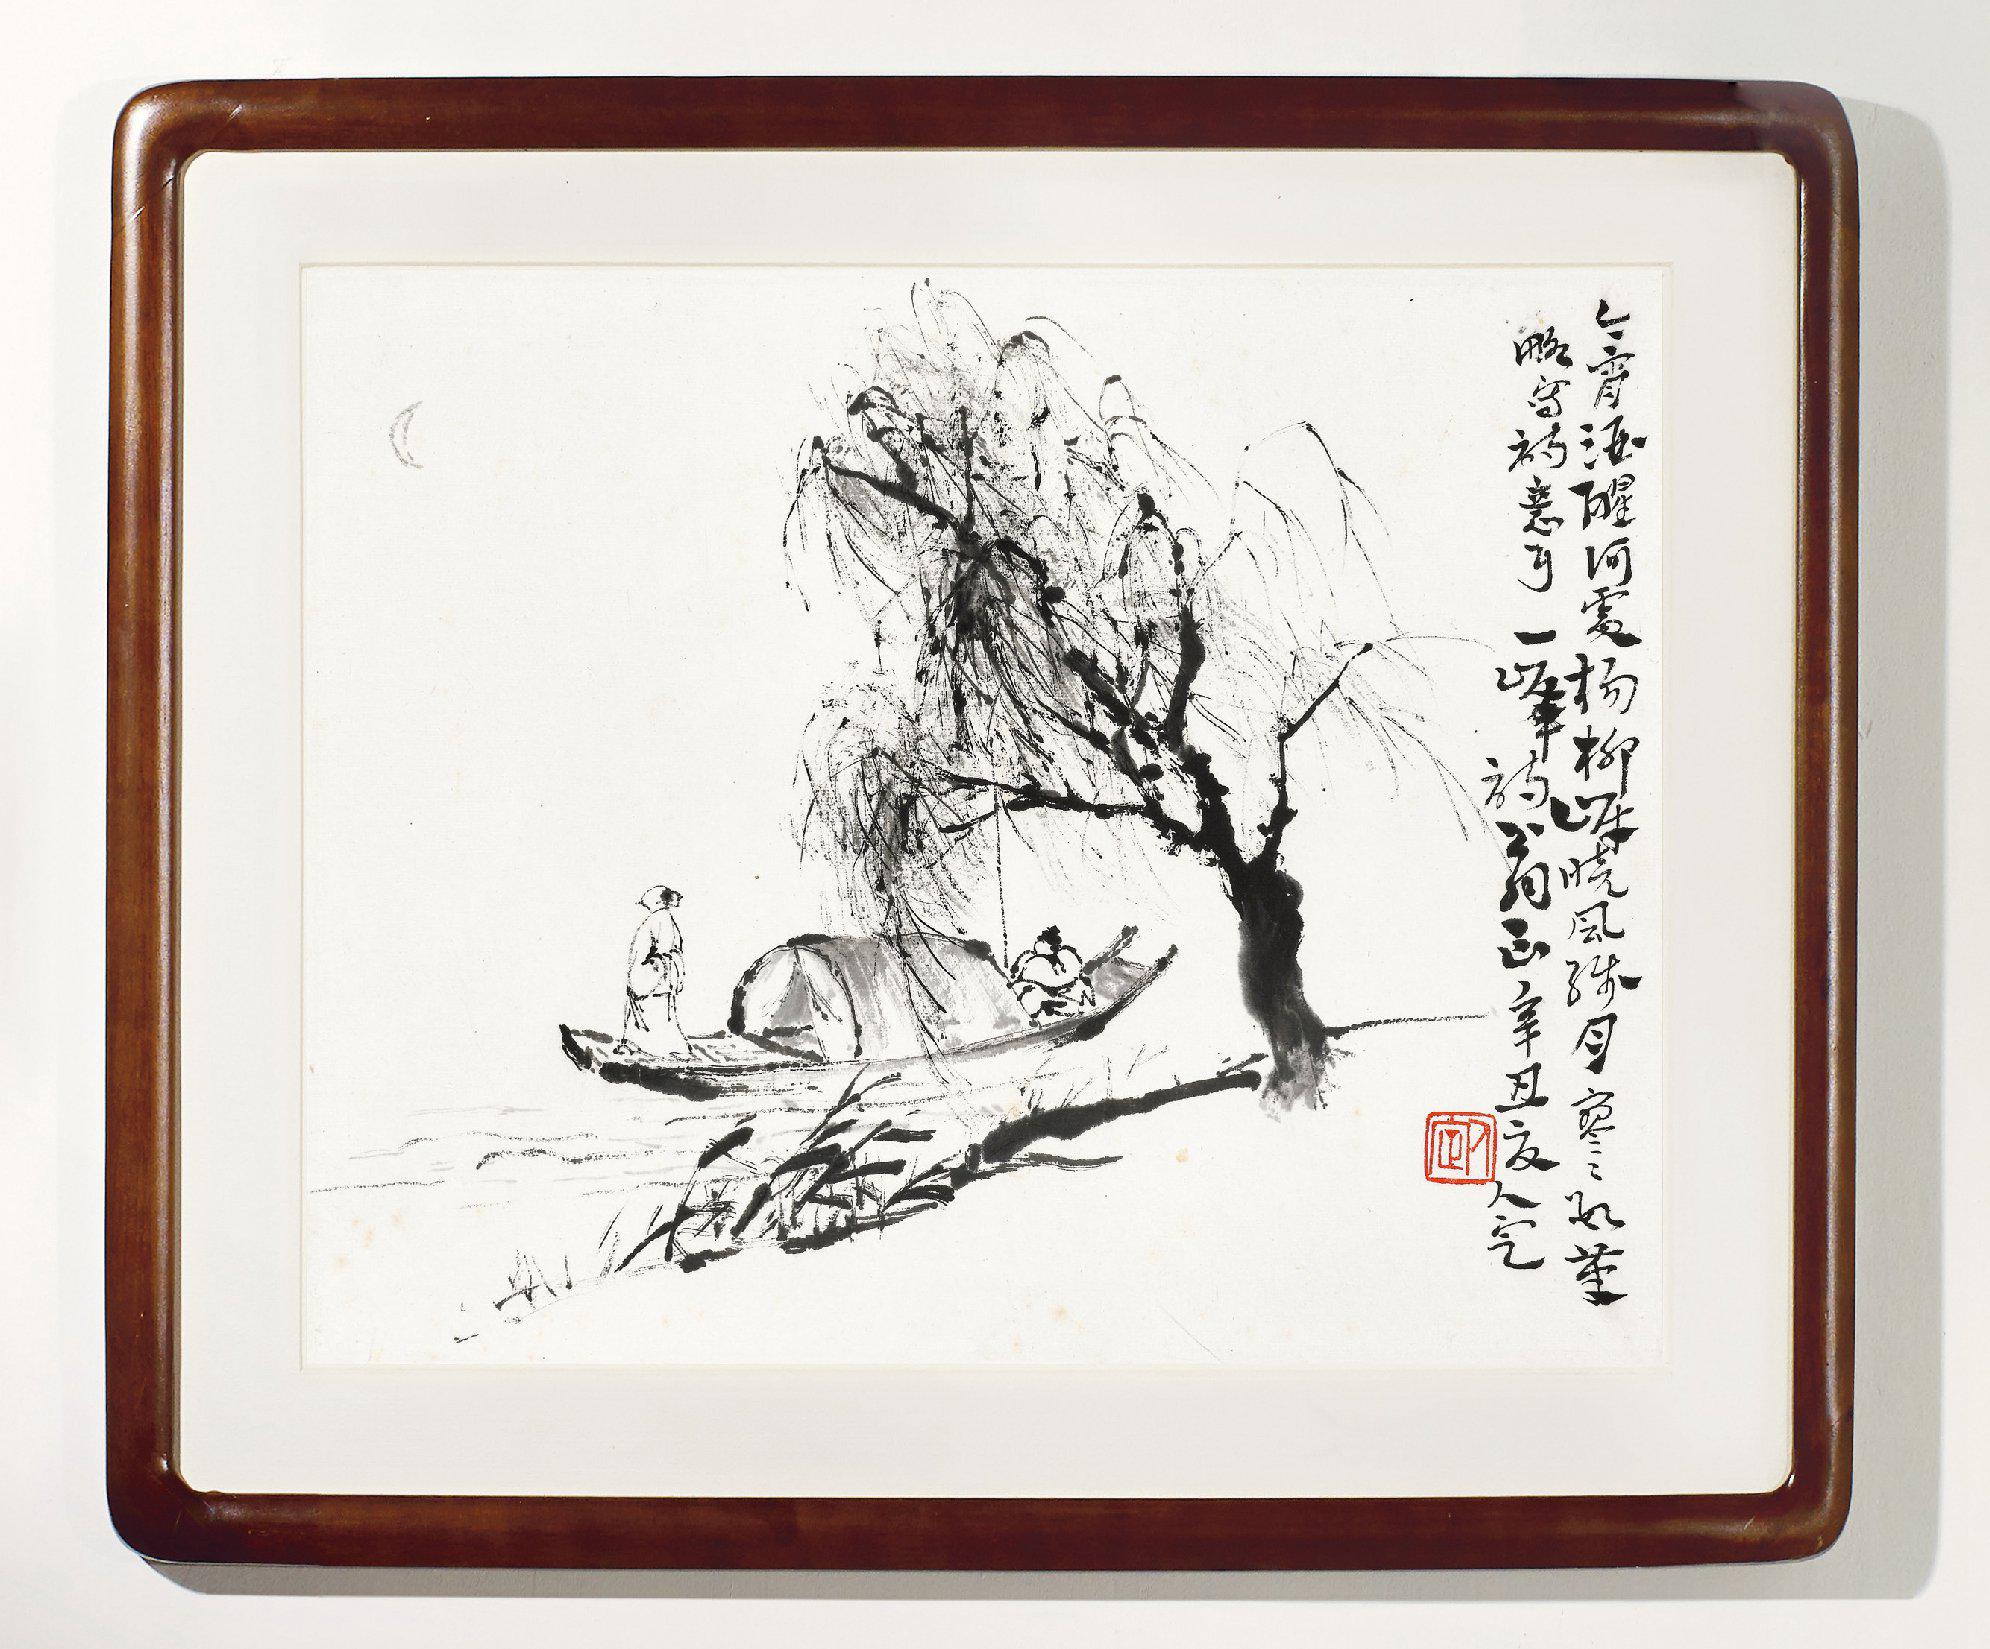 今宵酒醒何處楊柳岸曉風殘月寥〻數筆
略寫詩意耳 一峯詩翁正 辛丑夏人定